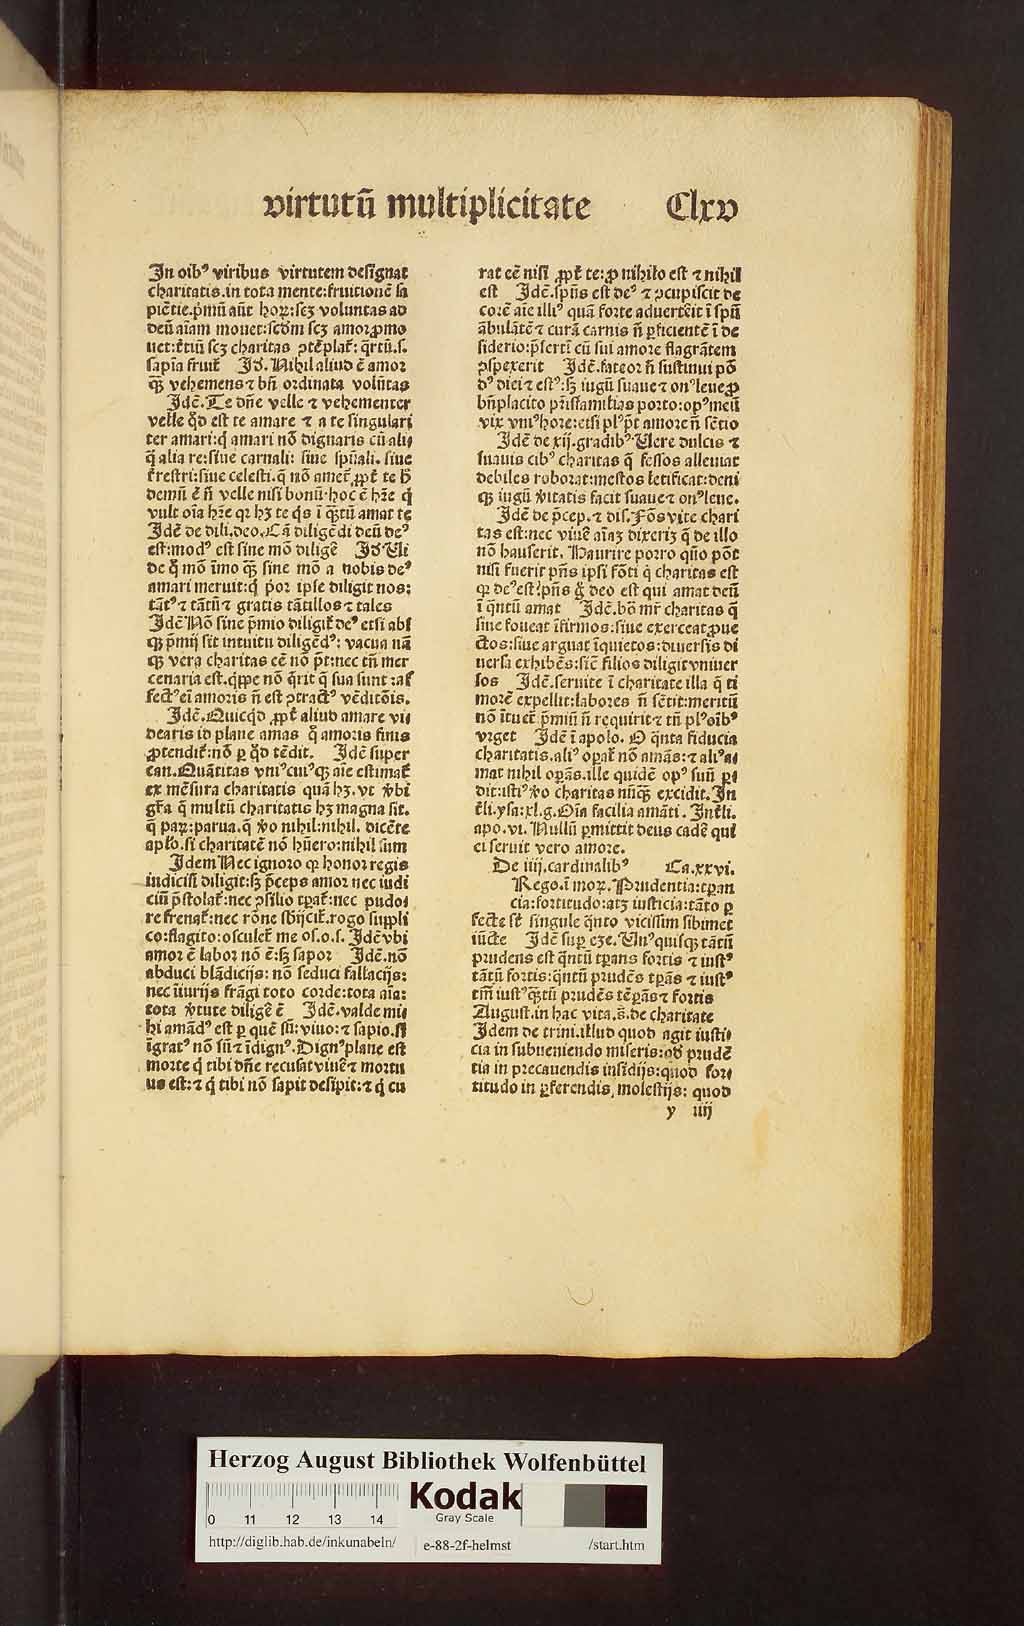 virtutū multiplicitate Clxv
In oib⁹ viribus virtutem designat
charitatis.in tota mente:fruitionē sa
piētie.p̄mū aūt hoꝝ:scꝫ voluntas ad
deū aīam mouet:scd̄m scꝫ amor ꝓmo
uet:t̄tiū scꝫ charitas ꝯtēplat᷑: q̄rtū.s.
sapīa fruit᷑ Jd. Nihil aliud ē amor
qꝫ̄ vehemens ⁊ bn̄ ordinata volūtas
Jdē. Te dn̄e velle ⁊ vehementer
velle qd̓ est te amare ⁊ a te singulari
ter amari:q̇ amari nō dignaris cū ali⸗
q̄ alia re:siue carnali: siue spūali. siue
t̄restri:siue celesti.q̇ nō amet᷑ ꝓpt̄ te h̓
demū ē n̄ velle nisi bonū.hoc ē hr̄e q̇
vult oīa hr̄e qꝛ hꝫ te q̇s ī qꝫ̄tū amat te
Jdē de dili.deo. Cā diligēdi deū de⁹
est:mod⁹ est sine mō diligē Jd Vi
de q̇ mō īmo qꝫ̄ sine mō a nobis de⁹
amari meruit:q̇ p̓or ipse diligit nos:
tāt⁹ ⁊ tātū ⁊ gratis tātillos ⁊ tales
Jdē Nō sine p̄mio diligit᷑ de⁹ etsi abs
qꝫ p̄mij sit intuitu diligēd⁹: vacua nā
qꝫ vera charitas eē nō p̄t:nec tn̄ mer
cenaria est.q̇ppe nō q̄rit q̄ sua sunt:af
fect⁹ eī amoris n̄ est ꝯtract⁹ vēditōis.
Jdē. Quicqd̓ ꝓpt̄ aliud amare vi⸗
dearis id plane amas q̊ amoris finis
ꝓtendit᷑:nō ꝑ qd̓ tēdit. Jdē super
can. Quātitas vni⁹cui⁹qꝫ aīe estimat᷑
ex mēsura charitatis quā hꝫ.vt v̓bi
gr̄a q̄ multū charitatis hꝫ magna sit.
q̄ paꝝ:parua.q̄ v̓o nihil:nihil. dicēte
apl̓o.si charitatē nō hūero:nihil sum
Jdem Nec ignoro qꝙ honor regis
iudiciū diligit:sꝫ p̄ceps amor nec iudi
ciū p̄stolat᷑:nec ꝯsilio tꝑat᷑:nec pudo⸗
re frenat᷑:nec rōne sb̓ijcit᷑.rogo suppli
co:flagito:osculet᷑ me os.o.s. Jdē vbi
amor ē labor nō ē:sꝫ sapor Jdē.nō
abduci blādicijs: nō seduci fallacijs:
nec iniurijs frāgi toto corde:tota aīa:
tota v̓tute diligē ē Jdē.valde mi⸗
hi amād⁹ est ꝑ quē sū:viuo:⁊ sapio.si
īgrat⁹ nō sū ⁊ īdign⁹. Dign⁹ plane est
morte q̇ tibi dn̄e recusat viuē ⁊ mortu
us est:⁊ q̇ tibi nō sapit desipit:⁊ q̇ cu
rat eē nisi ꝓpt̄ te:ꝓ nihilo est ⁊ nihil
est Jdē.spūs est de⁹ ⁊ ꝯcupiscit de
corē aīe illi⁹ quā forte aduerterit ī spū
ābulātē ⁊ curā carnis n̄ ꝑficientē ī de
siderio:p̄sertī cū sui amore flagrātem
ꝓspexerit Jdē.fateor n̄ sustinui pō
d⁹ diei ⁊ est⁹:sꝫ iugū suaue ⁊ on⁹ leue ꝓ
bn̄placito pr̄isfamilias porto:op⁹ meū
vix vni⁹ hore:etsi pl⁹ p̄t amore n̄ sētio
Jdē de xij.gradib⁹ Vere dulcis ⁊
suauis cib⁹ charitas q̄ fessos alleuiat
debiles roborat:mestos letificat:deni
qꝫ iugū v̓itatis facit suaue ⁊ on⁹ leue.
Jdē de p̄cep. ⁊ dis. Fōs vite chari
tas est:nec viuē aīaꝫ dixerī q̄ de illo
nō hauserit. Haurire porro quō pōt
nisi fuerit pn̄s ipsi fōti q̇ charitas est
qꝛ de⁹ est:pn̄s g̊ deo est qui amat deū
ī q̄ntū amat Jdē.bō mr̄ charitas q̄
siue foueat īfirmos:siue exerceat ꝓue
ctos:siue arguat īquietos:diuersis di
uersa exhibēs:sic̄ filios diligit vniuer
sos Jdē.seruite ī charitate illa q̄ ti
morē expellit:labores n̄ sētit:meritū
nō ītuet᷑ p̄miū n̄ requirit ⁊ tn̄ pl⁹ oīb⁹
vrget Jdē ī apolo. O q̄nta fiducia
charitatis.ali⁹ oꝑat᷑ nō amās:⁊ ali⁹ a⸗
mat nihil oꝑās.ille quidē op⁹ suū ꝑ⸗
dit:isti⁹ v̓o charitas nūqꝫ̄ excidit. In
t̄li.ysa:xl.g. Oīa facilia amāti. Int̄li.
apo.vi. Nullū ꝑmittit deus cadē qui
ei seruit vero amore.
De iiij.cardinalib⁹ Ca.xxvi.
Rego.ī moꝝ. Prudentia:tꝑan
cia:fortitudo:atꝫ iusticia:tāto ꝑ
fecte st̄ singule q̄nto vicissim sibimet
iūcte Jdē suꝑ eze. Vn⁹quisqꝫ tātū
prudens est q̄ntū tꝑans fortis ⁊ iust⁹
tātū fortis:q̄ntū prudēs tꝑās ⁊ iust⁹
tm̄ iust⁹ qꝫ̄tū prudēs tēꝑās ⁊ fortis
August.in hac vita.ē.de charitate
Jdem de trini.illud quod agit iusti⸗
cia in subueniendo miseris:qd̓ prudē
tia in precauendis insidijs:quod for⸗
titudo in ꝑferendis molestijs: quod
y iiij
Herzog August Bibliothek Wolfenbüttel
Kodak
Gray Scale
0 11 12 13 14
http://diglib.hab.de/inkunabeln/ e-88-2f-helmst /start.htm